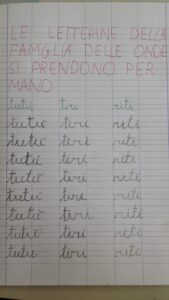 LE LETTERINE DELLA
FAMIGLIA DELLE ONDE
SI PRENDONO PER
MANO
tutti tiri riti
tutti tiri riti
tutti tiri riti
tutti tiri riti
tutti tiri riti
tutti tiri riti
tutti tiri riti
tutti tiri riti
tutti tiri riti